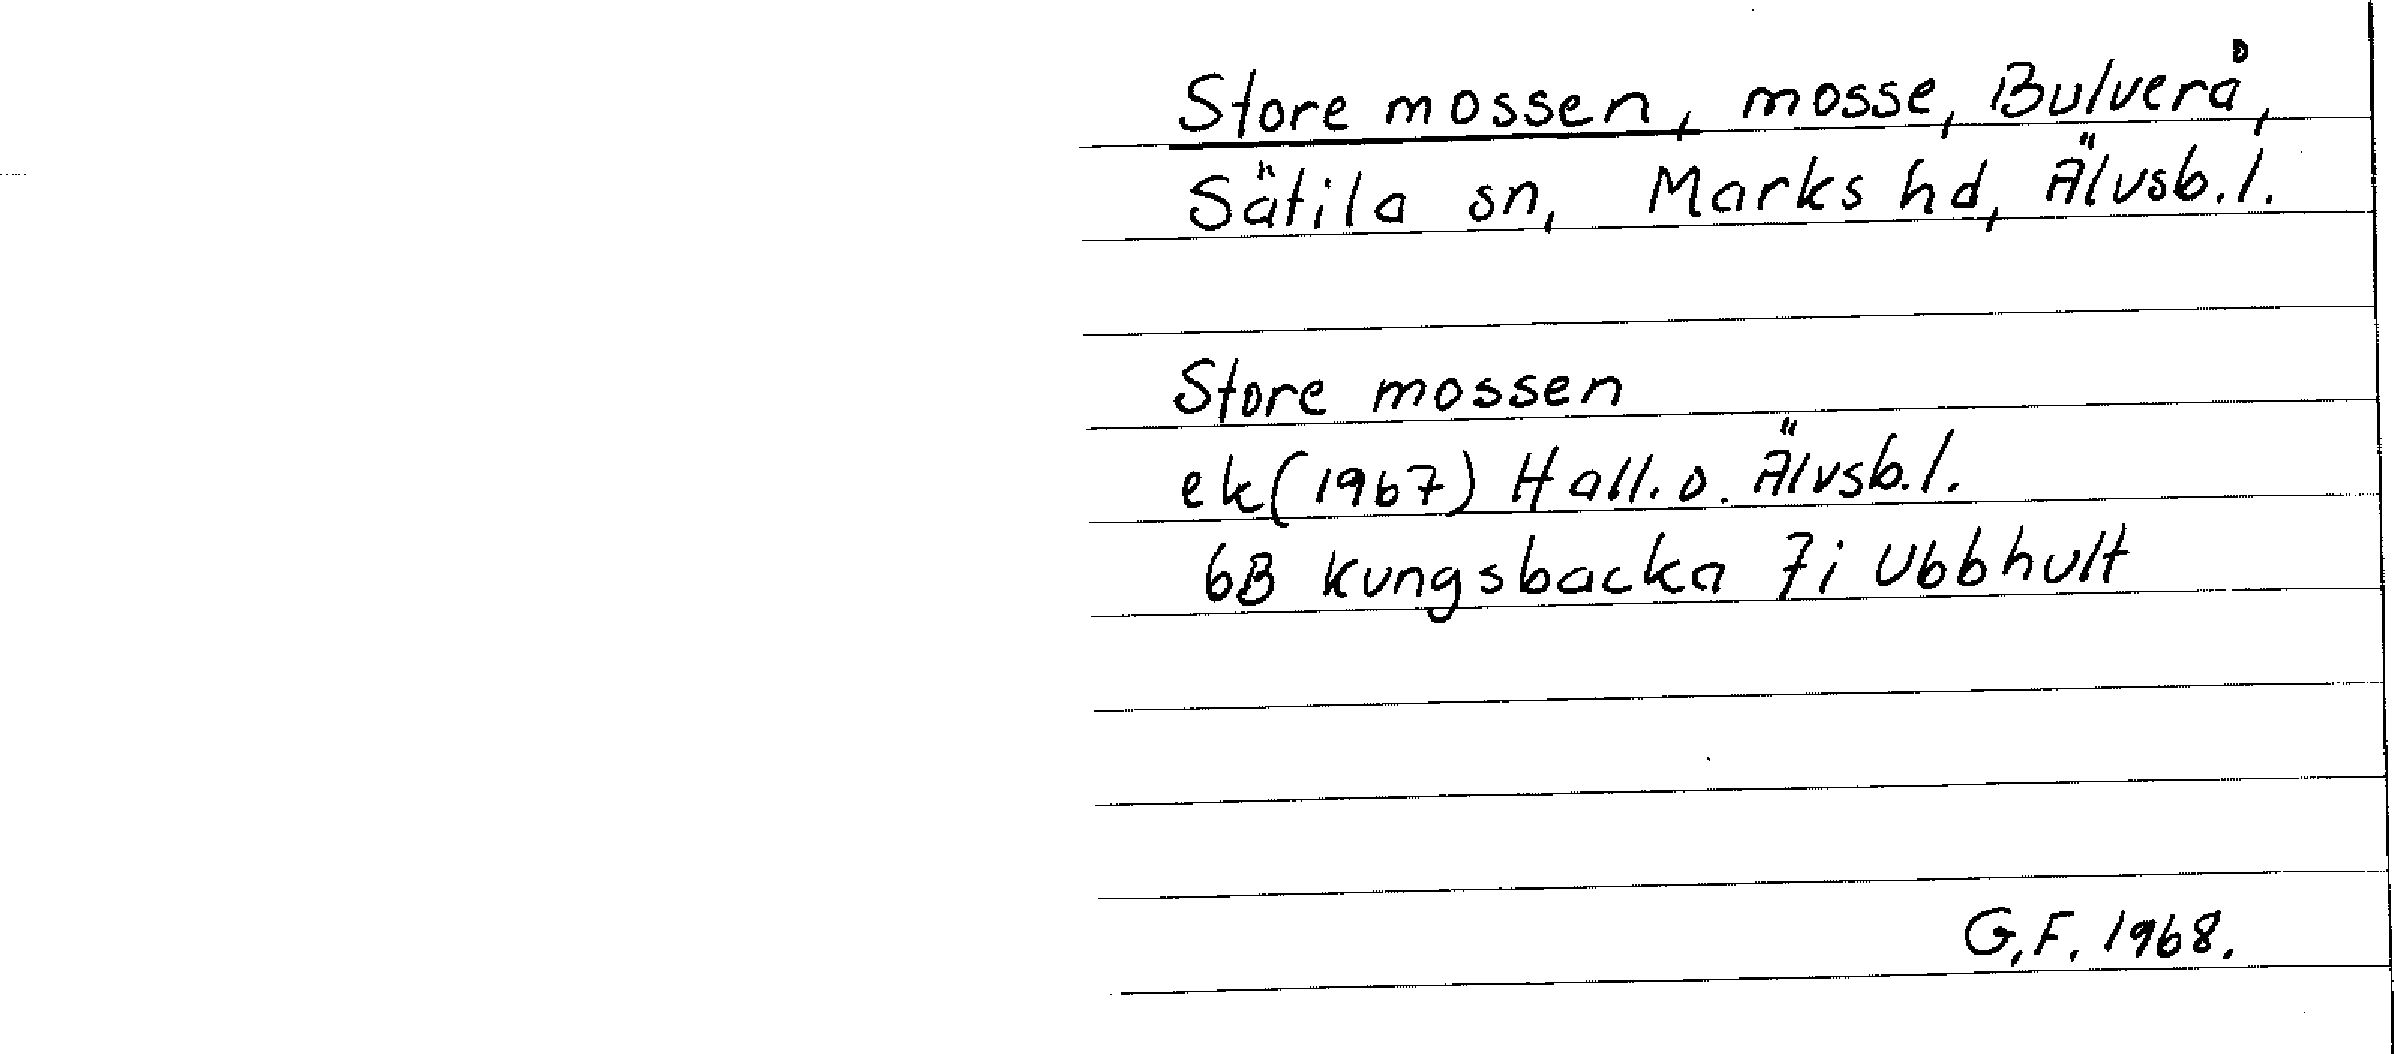 Store mossen, mosse, Bulverå,
Sätila sn, Marks hd, Älvsb.l.
Store mossen
ek(1967) Hall.o. Älvsb.l.
6B Kungsbacka 7i Ubbhult
G.F. 1968.